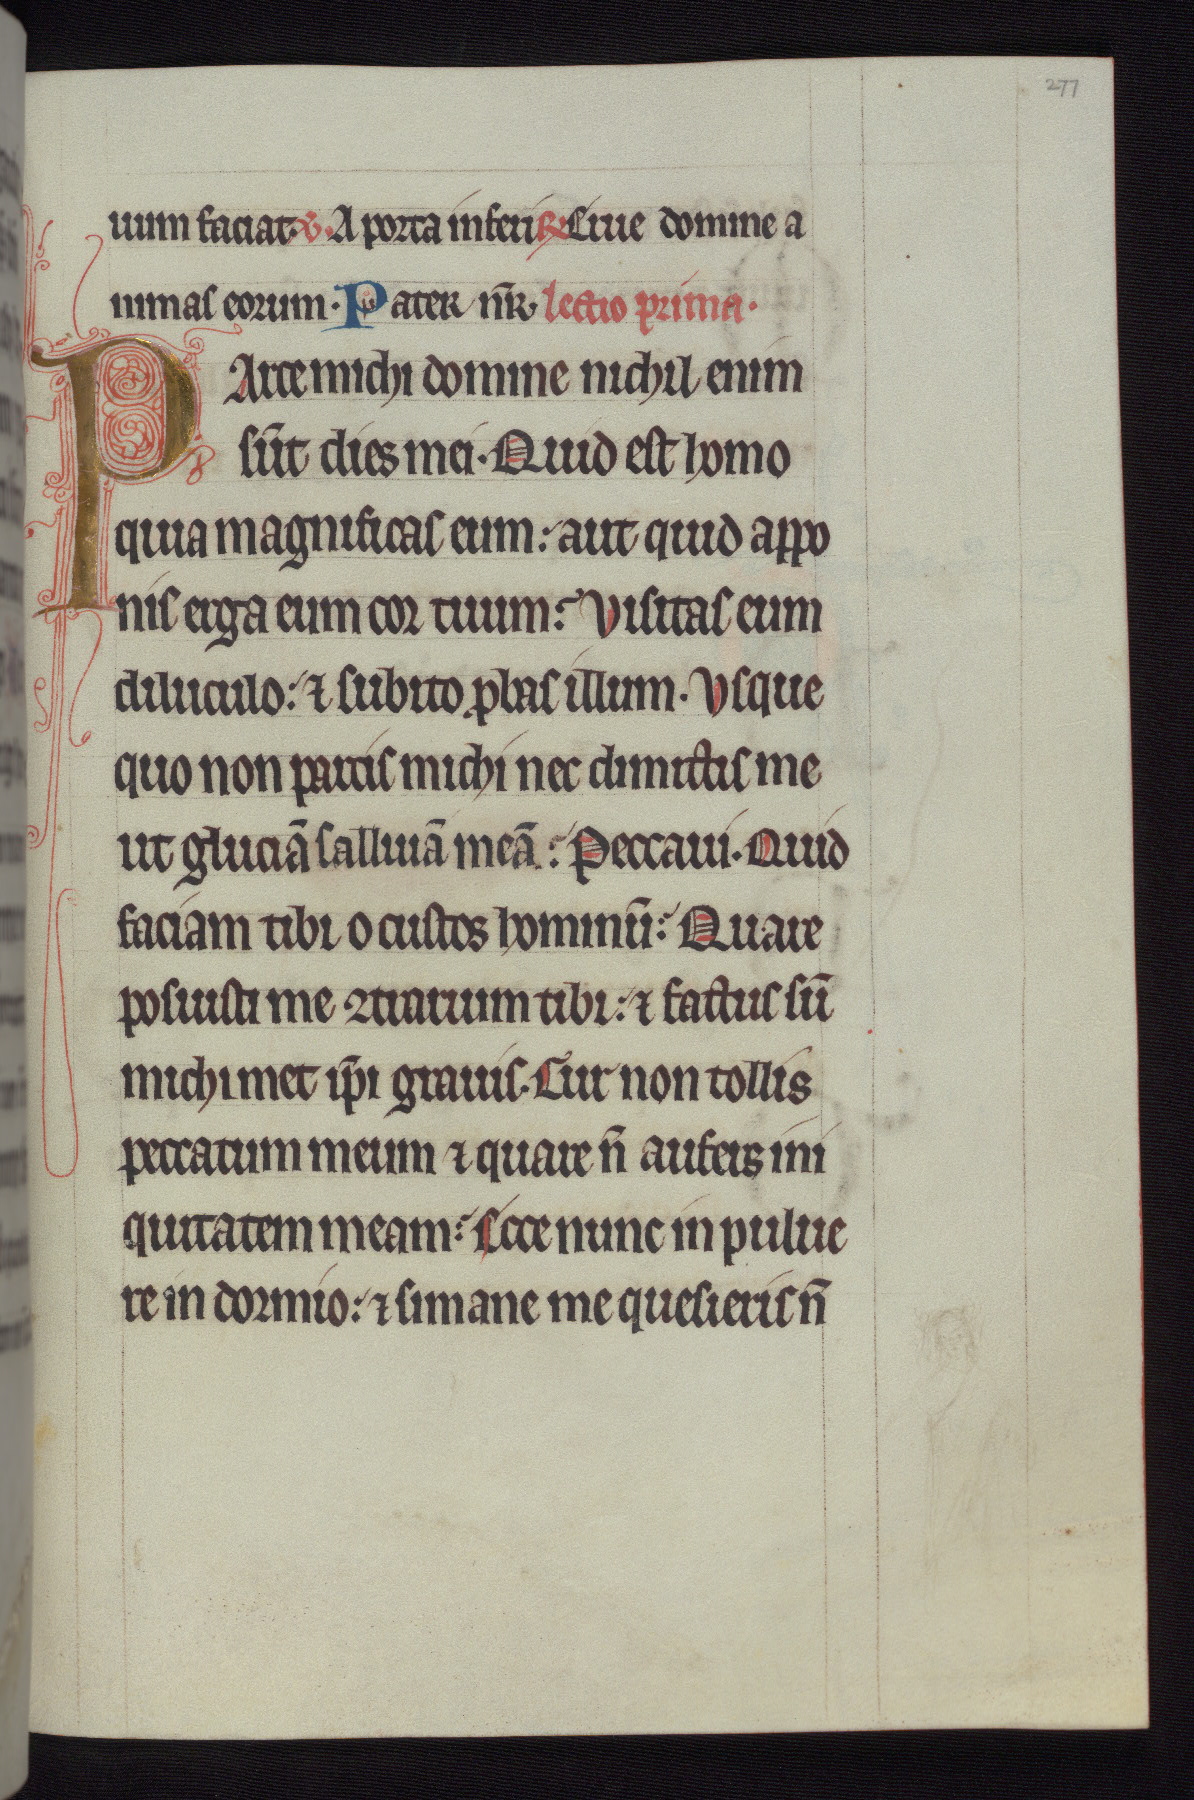 277
uum faciat. v. A porta inferi. R. Erue domine a
nimas eorum. Pater nr̄. lectio prima.
PArce michi domine nichil enim
sūt dies mei. Quid est homo
quia magnificas eum: aut quid appo
nis erga eum cor tuum: Visitas eum
diluculo: ⁊ subito ꝓbas illum. Vsque
quo non parcis michi nec dimittis me
ut gluciā salliuā meā: Peccaui. Quid
faciam tibi o custos hominū: Quare
posuisti me ꝯtrarium tibi: ⁊ factus sū
michimet ip̄i grauis. Cur non tollis
peccatum meum ⁊ quare n̄ aufers ini
quitatem meam: Ecce nunc in pulue
re in dormio: ⁊ si mane me quesieris n̄